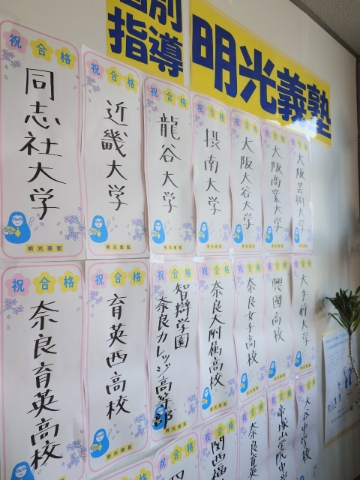 個別
指導
明光義塾
祝合格
同志社大学
明光義塾
祝合格
近畿大学
明光義塾
祝合格
龍谷大学
明光義塾
祝合格
摂南大学
明光義塾
祝合格
大阪大谷大学
祝合格
大阪商業大学
祝合格
大阪芸術大学
祝合格
奈良育英高校
祝合格
育英西高校
明光義塾
祝合格
智辯学園
奈良カレッジ高等部
祝合格
奈良大附属高校
祝合格
奈良女子高校
祝合格
興國高校
祝合格
祝合格
祝合格
奈良育英
帝塚山学院中学